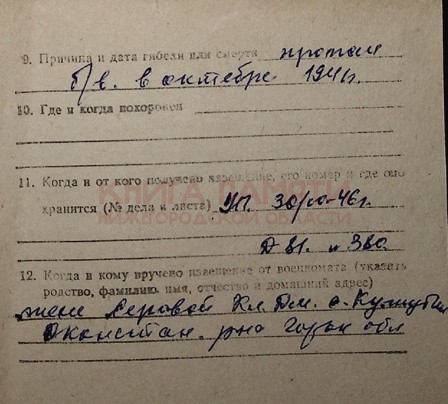 9. Причина и дата гибели или смерти пропал
б/в. в октябре 1941г.
10. Где и когда похоронен
11. Когда и от кого получено извещение, его номер и где оно
КНИГА ПАМЯТИ
хранится (№ дела и листа) УП. 30/10-46г.
НИЖЕГОРОДСКОЙ ОБЛАСТИ
Д 81. л 380.
12. Когда и кому вручено извещение от военкомата (указать
родство, фамилию, имя, отчество и домашний адрес)
жене Серовой Кл. Дм. с.
Д Констан. р-на Горьк обл